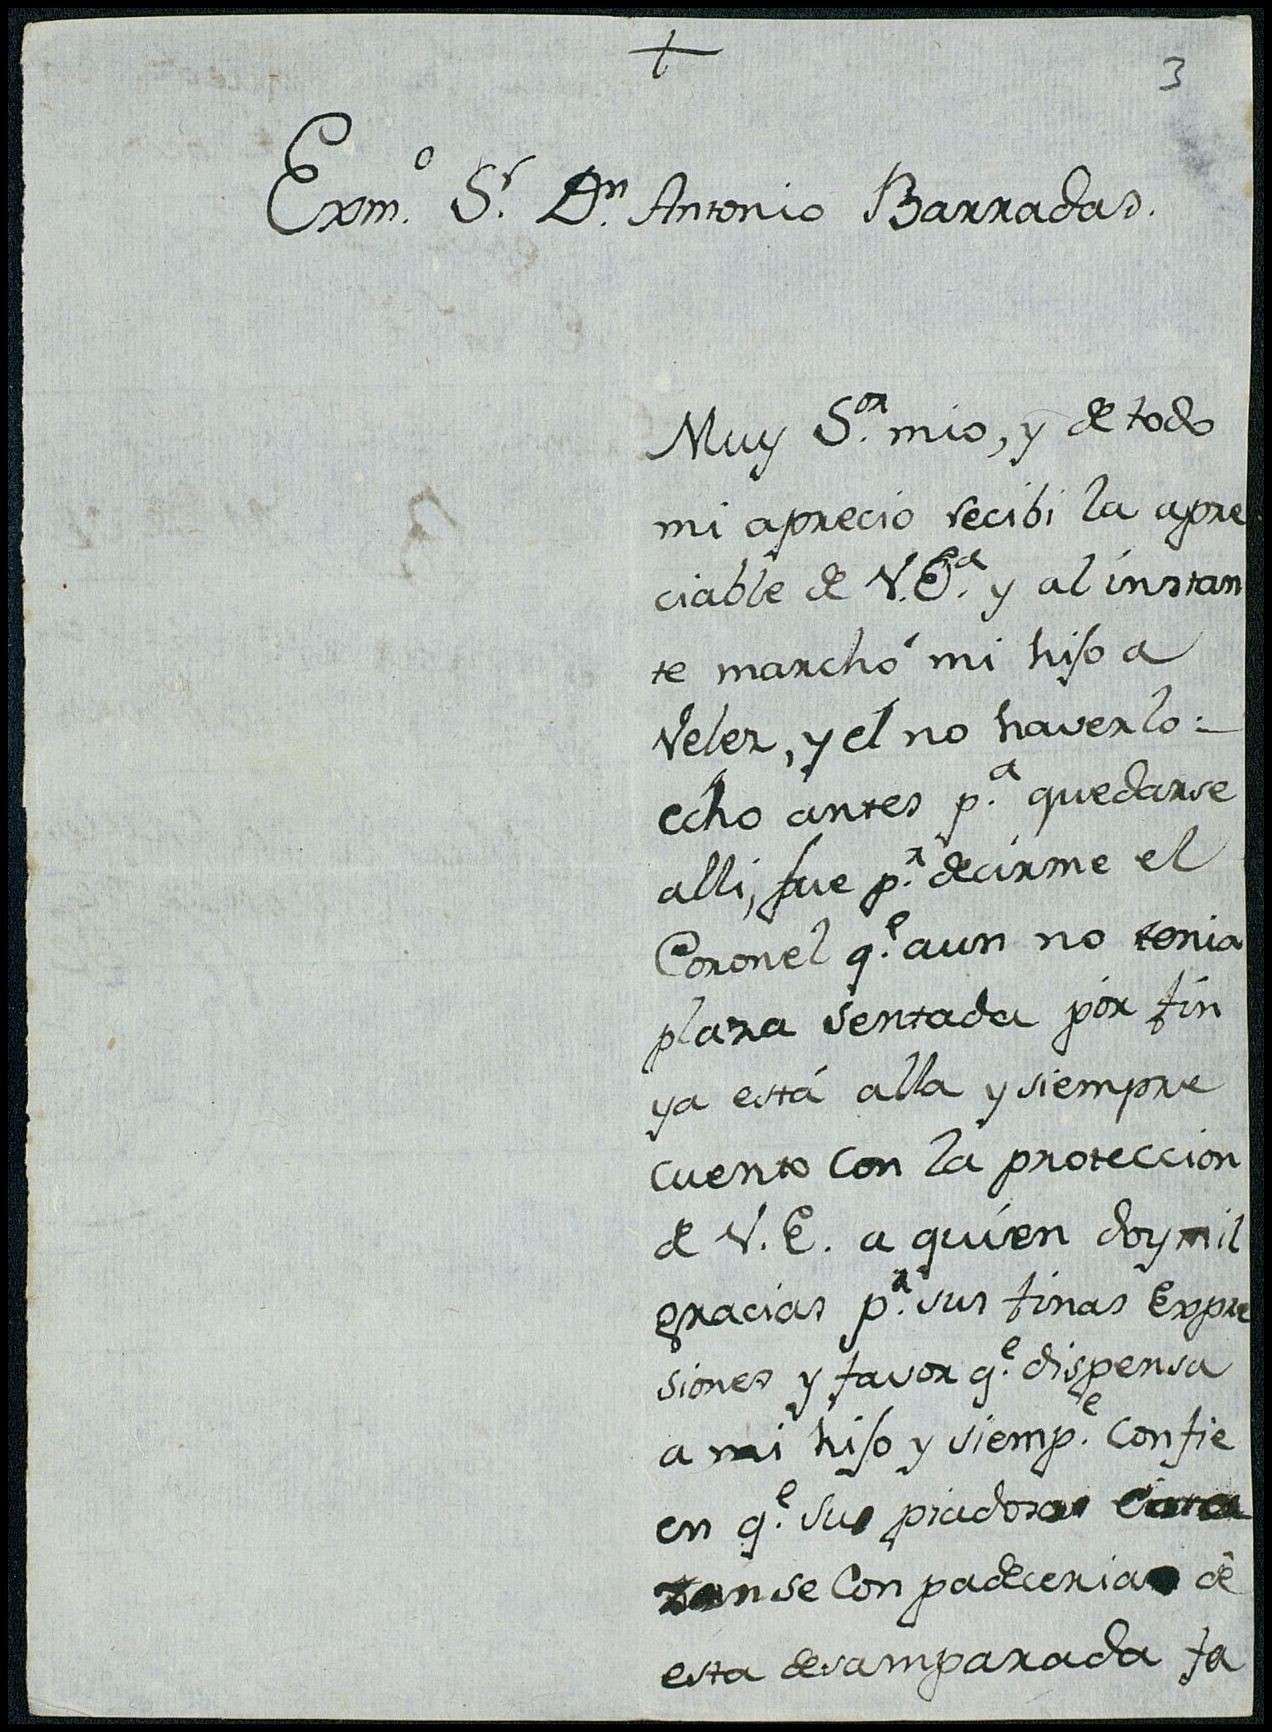 +
3
Exm.º S.r D.n Antonio Barradas.
Muy S.or mio, y de todo
mi aprecio recibi la apre
ciable de V.E.a y al instan
te marchó mi hijo a
Velez, y el no haverlo =
echo antes p.a quedarse
alli, fue p.r decirme el
Coronel q.e aun no tenia
plaza sentada por fin
ya está alla y siempre
cuento con la proteccion
de V. E. a quien doy mil
gracias p.r sus finas Expre
siones y favor q.e dispensa
a mi hijo y siemp.e confie
en q.e su piadoso Cora
zon se Conpadeceria de
esta desamparada fa